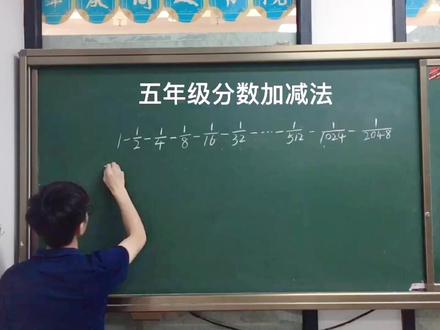 五年级分数加减法
1-1/2-1/4-1/8-1/16-1/32-⋯-1/512-1/1024-1/2048